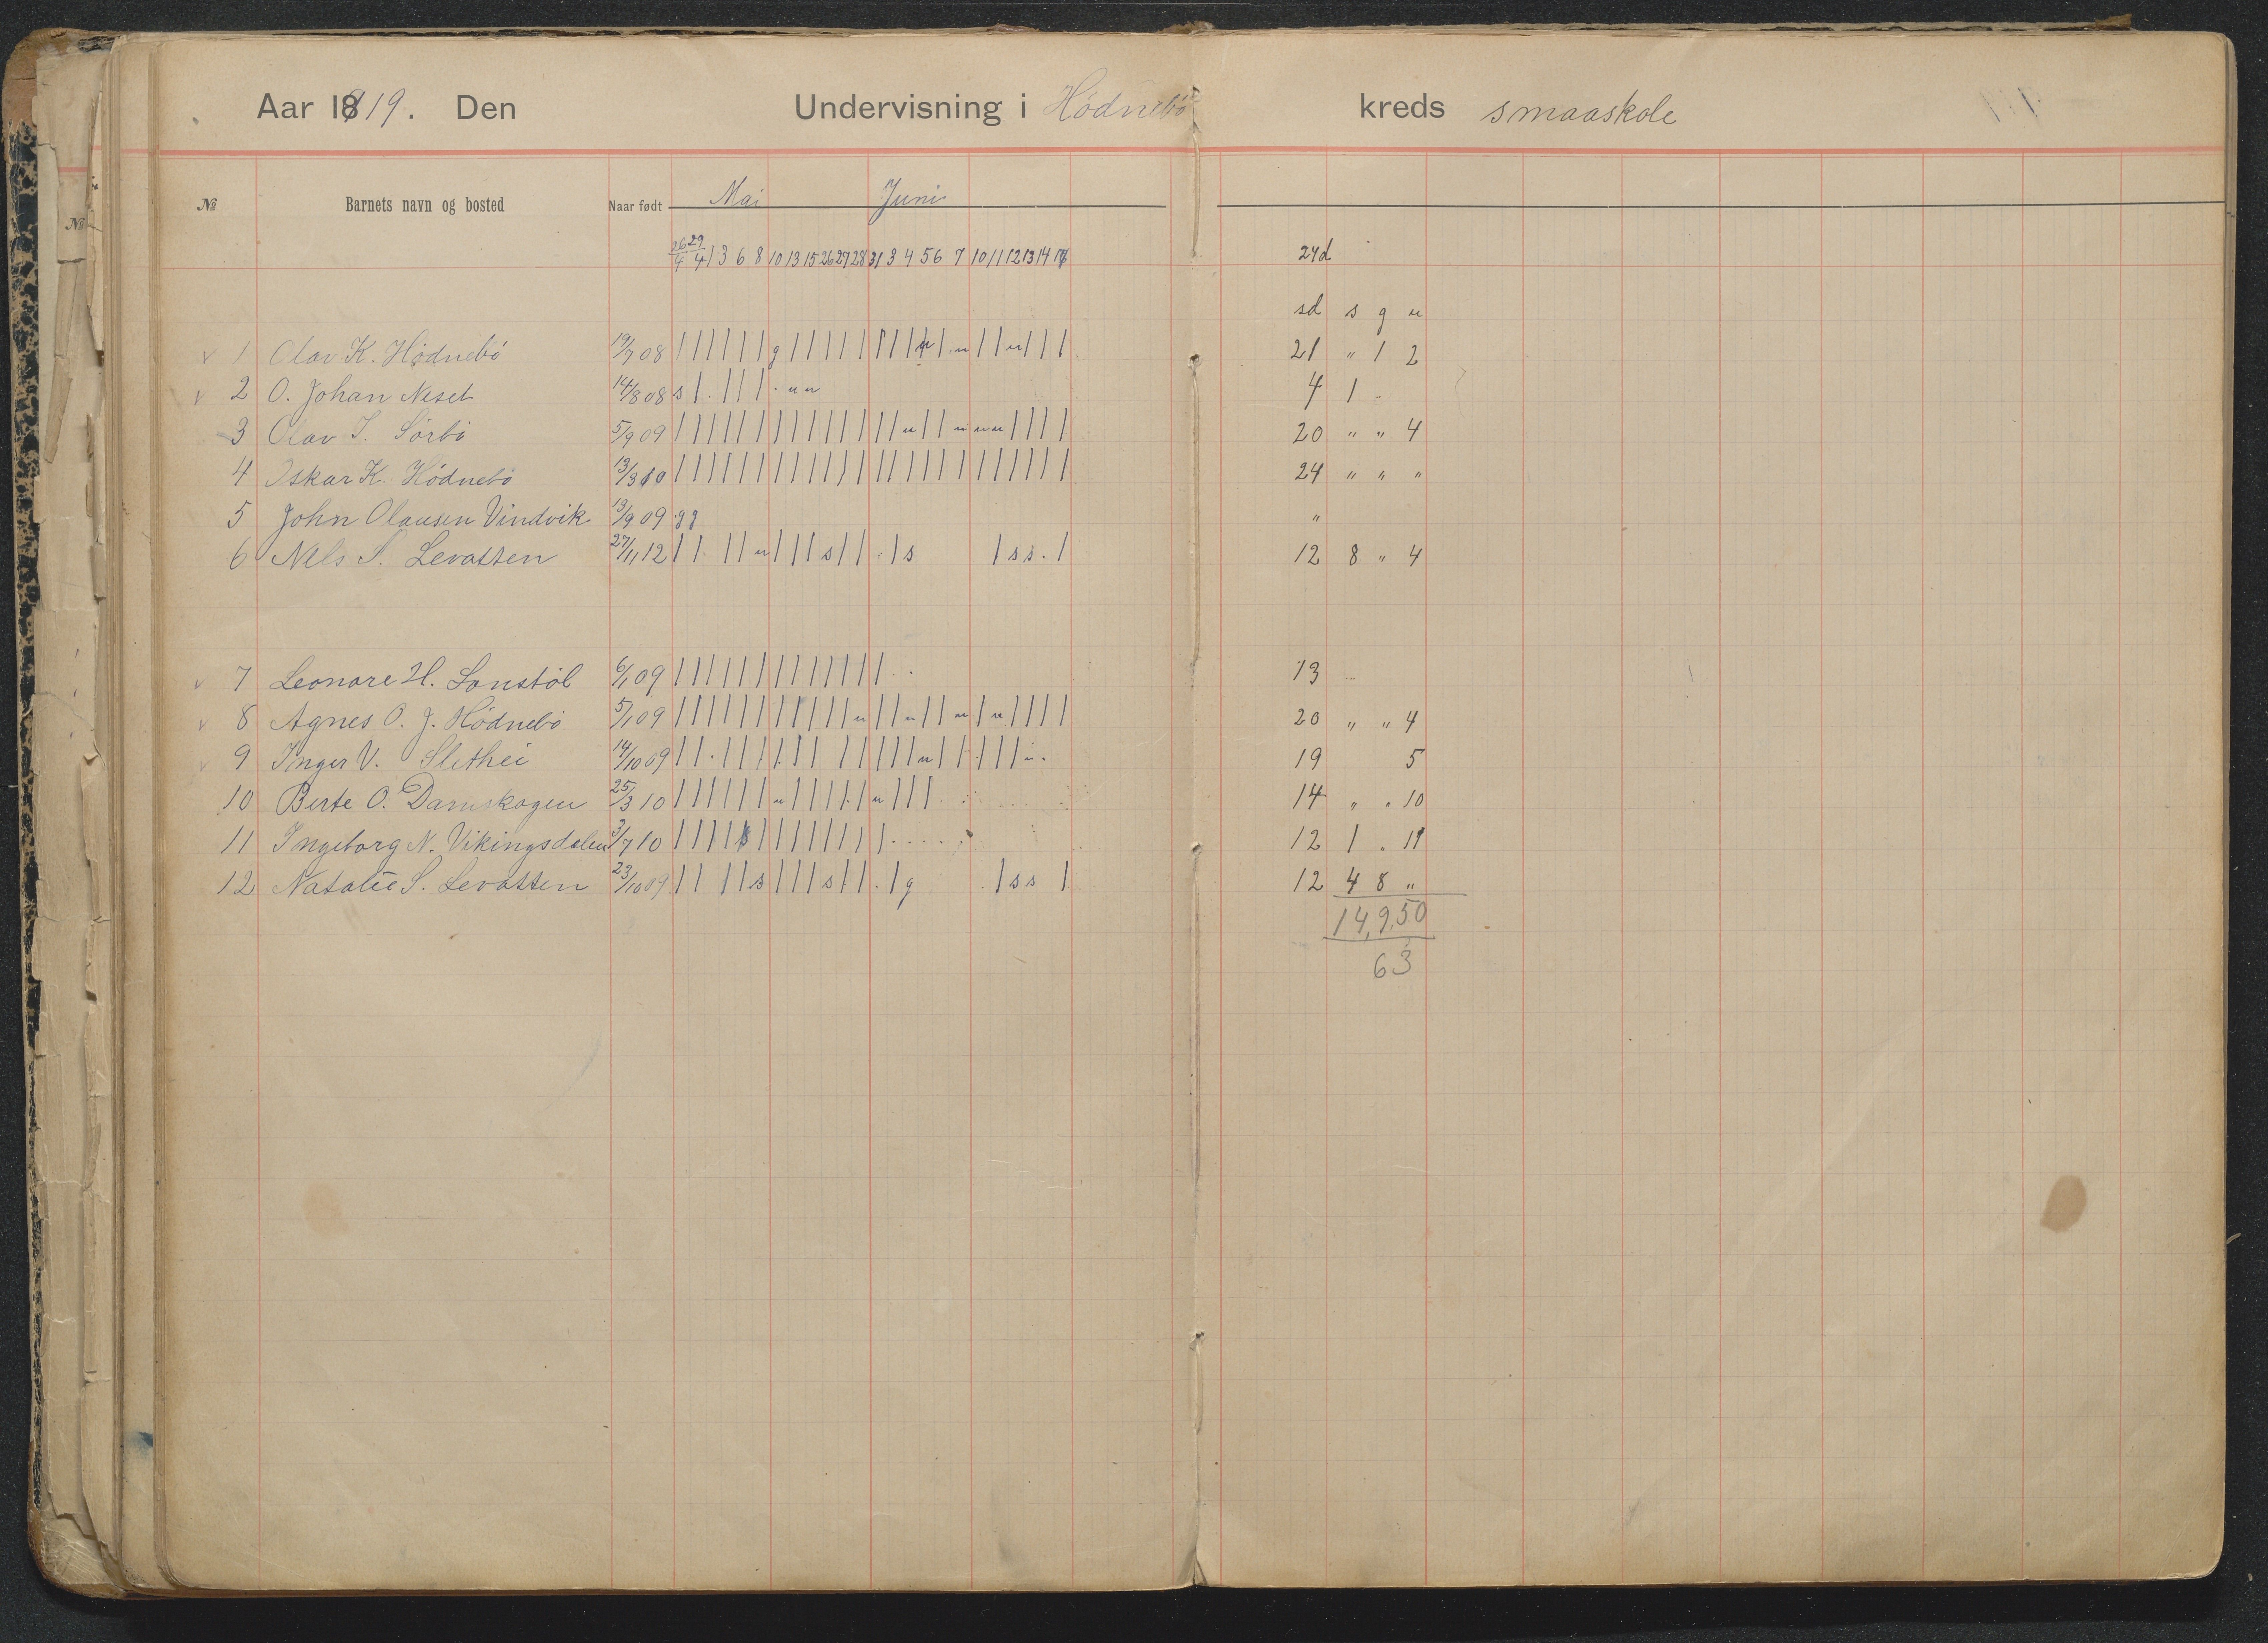 Aar 1919. Den Undervisning i Hødnebö kreds smaaskole
№ Barnets navn og bosted Naar født Mai Juni
26/4 29/4 1 3 6 8 10 13 15 26 27 28 31 3 4 5 6 7 10 11 12 13 14 24d
sd s g u
v 1 Olav K. Hødnebö 19/7 08 | | | | | | g | | | | | | | | | | u | | u | | | 21 " 1 2
v 2 O. Johan Neset 14/8 08 s | . | | | . u u 4 1 "
3 Olav S. Sörbö 5/9 09 | | | | | | | | | | | | | | u | | u u u | | | | 20 " " 4
4 Oskar K. Hödnebö 13/3 10 | | | | | | | | | | | | | | | | | | | | | | | | 24 " " "
5 John Olausen Vindvik 13/9 09 g g "
6 Nels S. Levatten 27/11 12 | | | | u | | | s | | . | s | s s . | 12 8 " 4
v 7 Leonore H. Lonstöl 6/1 09 | | | | | | | | | | | | | . . 13 "
v 8 Agnes O. J. Hödnebö 5/1 09 | | | | | | | | | | | u | | u | | u | u | | | | 20 " " 4
v 9 Inger V. Slethei 14/10 09 | | . | | | | | | | | | | | u | | | | | u . 19 5
10 Berte O. Damskogen 25/3 10 | | | | | | u | | | | | u | | | 14 " " 10
11 Ingeborg N. Vikingsdalen 3/7 10 | | | | s | | | | | | | | . . . . 12 1 " 11
12 Natalie S. Levatten 23/10 09 | | | | s | | | s | | . | g | s s | 12 4 8 "
14,9,50
63